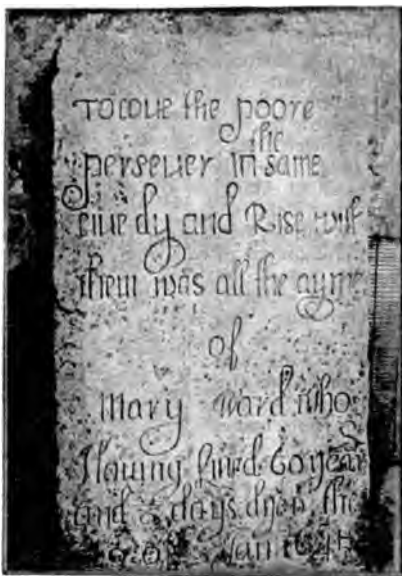 TO loue the poore
the
perseuer in same
liue dy and Rise with
them was all the ayme
of
Mary Ward who
Hauing liued 60 years
and 8 days dyed the
of Jan